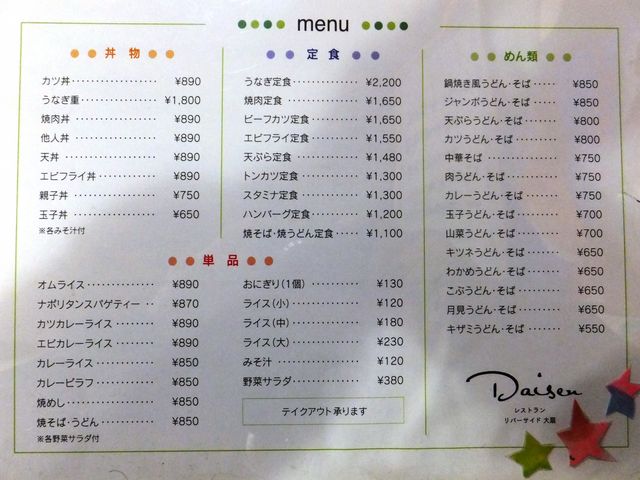 menu
丼物
カツ丼 ¥890
うなぎ重 ¥1,800
焼肉丼 ¥890
他人丼 ¥890
天丼 ¥890
エビフライ丼 ¥890
親子丼 ¥750
玉子丼 ¥650
※各みそ汁付
定食
うなぎ定食 ¥2,200
焼肉定食 ¥1,650
ビーフカツ定食 ¥1,650
エビフライ定食 ¥1,550
天ぷら定食 ¥1,480
トンカツ定食 ¥1,300
スタミナ定食 ¥1,300
ハンバーグ定食 ¥1,200
焼そば・焼うどん定食 ¥1,100
めん類
鍋焼き風うどん・そば ¥850
ジャンボうどん・そば ¥850
天ぷらうどん・そば ¥800
カツうどん・そば ¥800
中華そば ¥750
肉うどん・そば ¥750
カレーうどん・そば ¥750
玉子うどん・そば ¥700
山菜うどん・そば ¥700
キツネうどん・そば ¥650
わかめうどん・そば ¥650
こぶうどん・そば ¥650
月見うどん・そば ¥650
キザミうどん・そば ¥550
単品
オムライス ¥890
ナポリタンスパゲティー ¥870
カツカレーライス ¥890
エビカレーライス ¥890
カレーライス ¥850
カレーピラフ ¥850
焼めし ¥850
焼そば・うどん ¥850
※各野菜サラダ付
おにぎり(1個) ¥130
ライス(小) ¥120
ライス(中) ¥180
ライス(大) ¥230
みそ汁 ¥120
野菜サラダ ¥380
テイクアウト承ります
Daisen
レストラン
リバーサイド 大扇